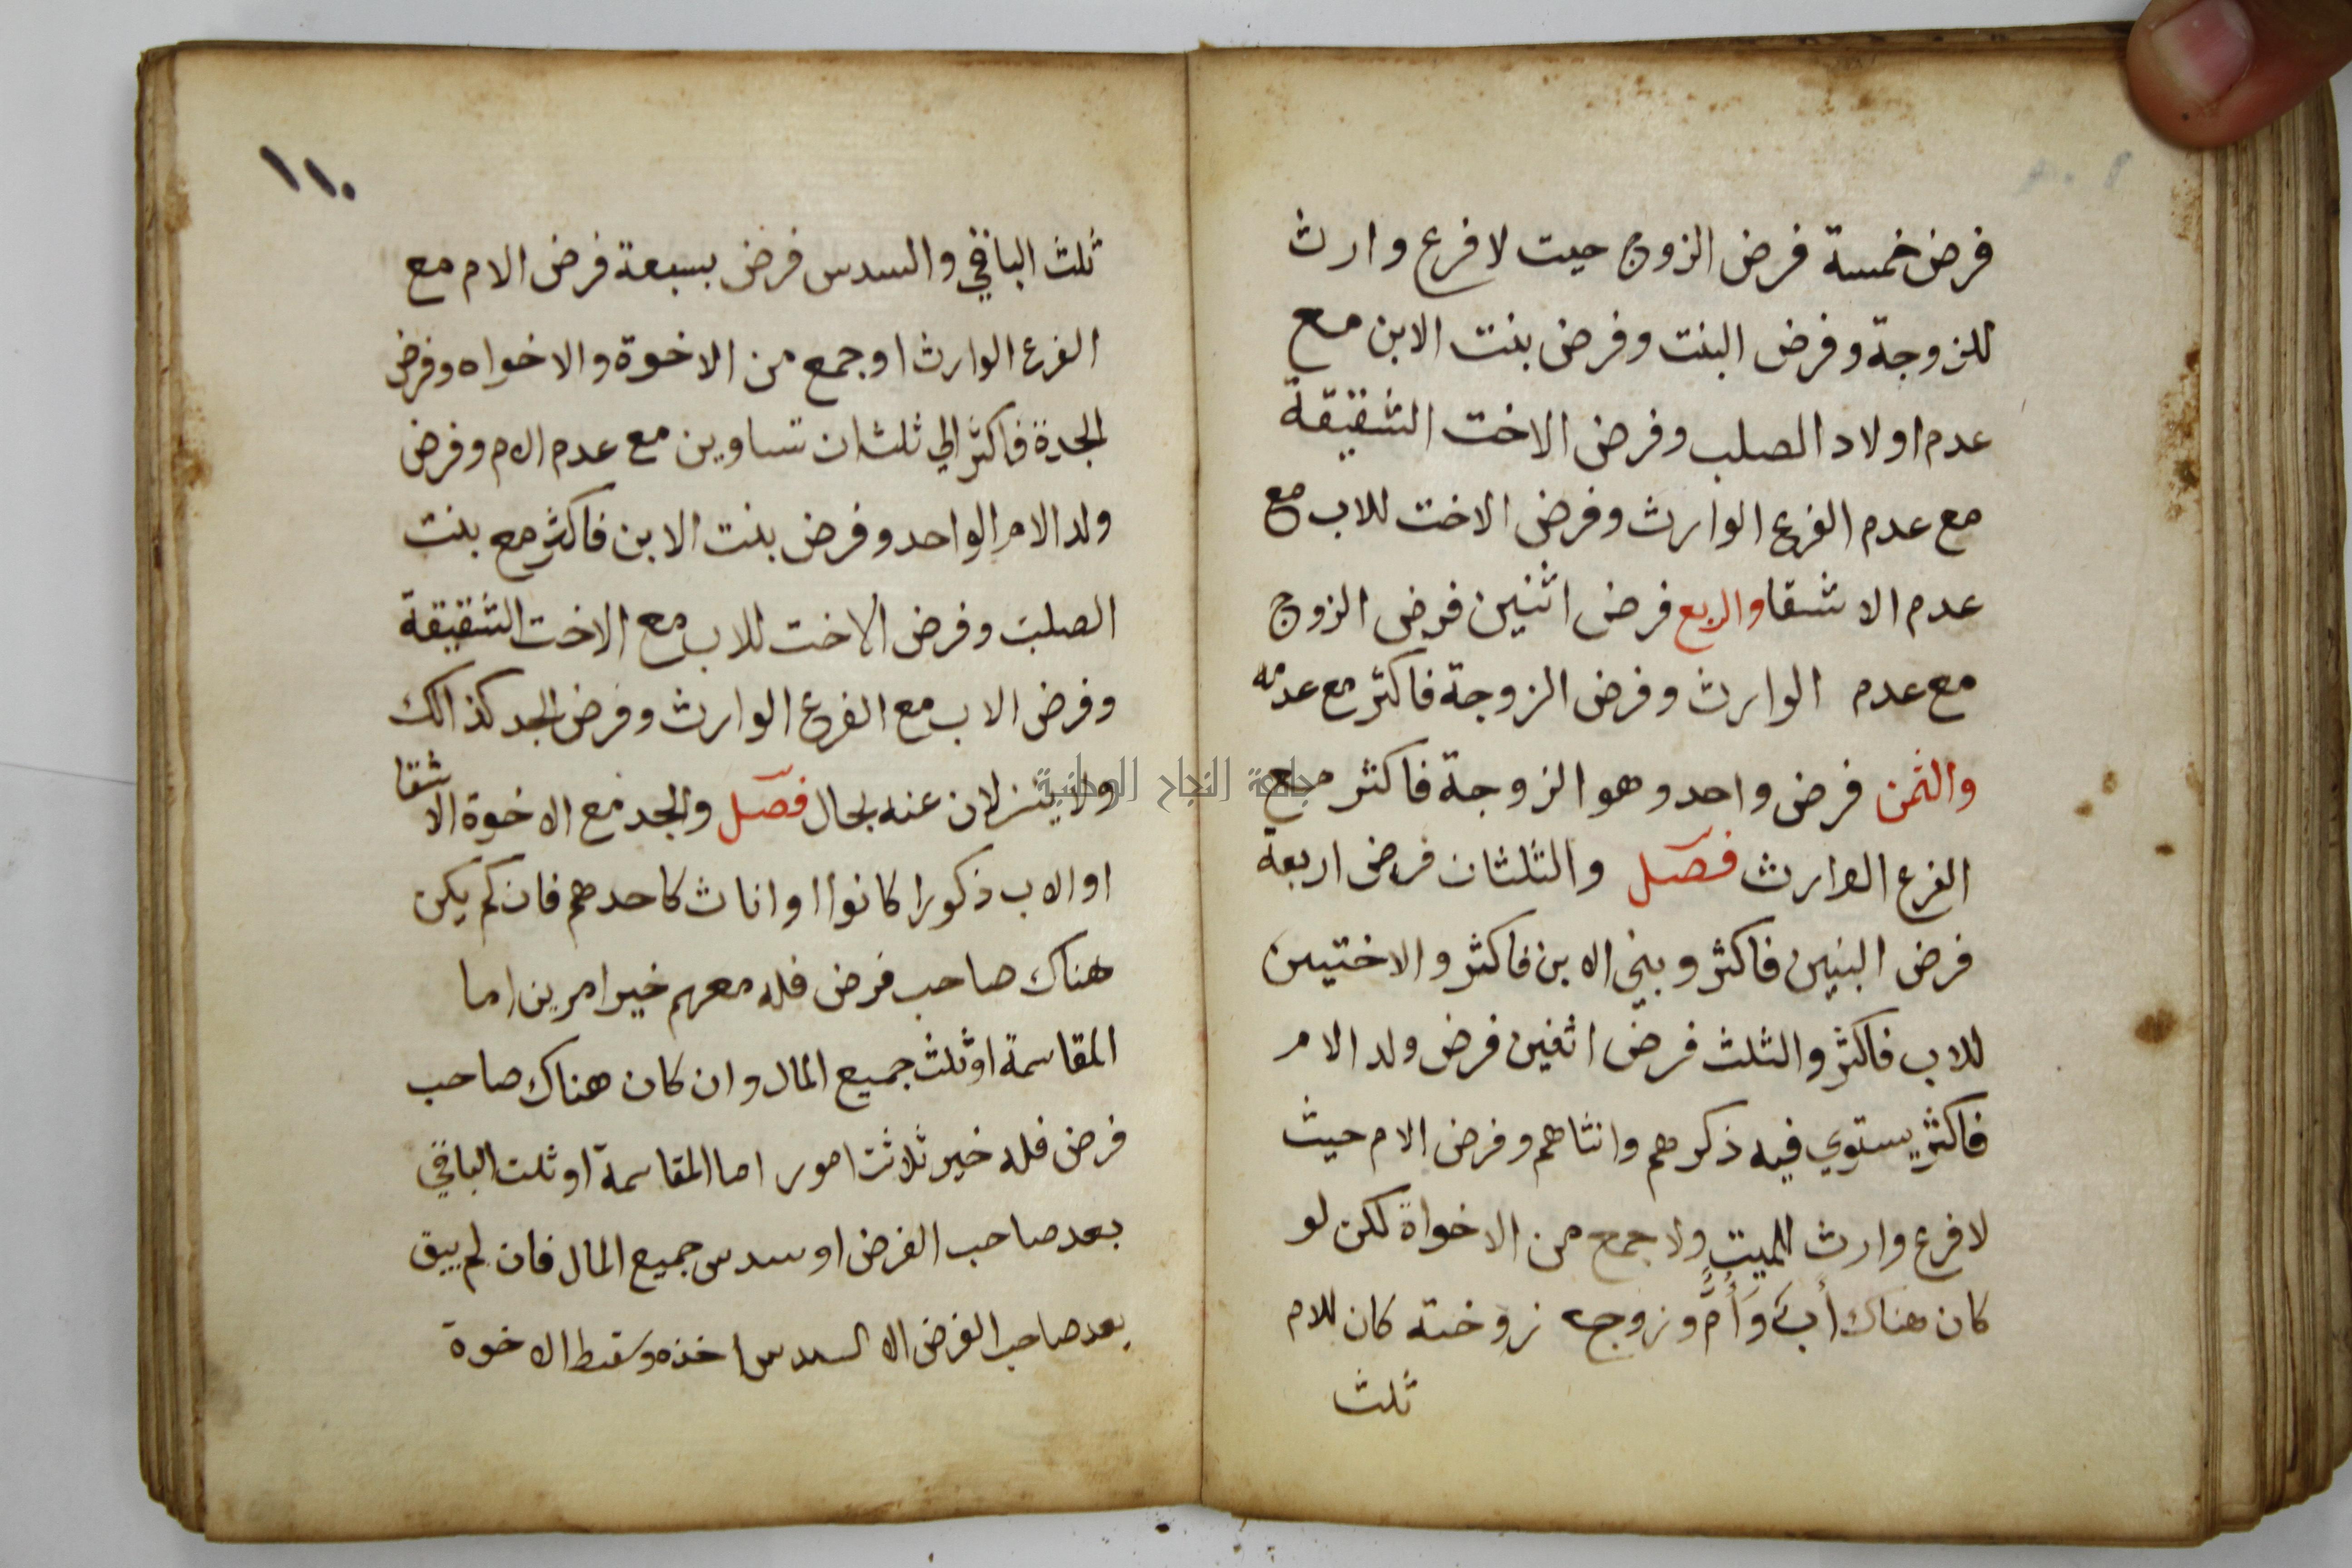 فرض خمسة فرض الزوج حيت لا فرع وارث
للزوجة وفرض البنت وفرض بنت الابن مع
عدم اولاد الصلب وفرض الاخت الشقيقة
مع عدم الفرع الوارث وفرض الاخت للاب مع
عدم الاشقا والربع فرض اثنين فرض الزوج
مع عدم الوارث وفرض الزوجة فاكثر مع عدمه
والثمن فرض واحد وهو الزوجة فاكثر مع
الفرع الوارث فصل والثلثان فرض اربعة
فرض البنين فاكثر وبني الابن فاكثر والاختين
للاب فاكثر والثلث فرض اثنين فرض ولد الام
فاكثر يستوي فيه ذكرهم وانثاهم وفرض الام حيث
لا فرع وارث للميت ولا جمع من الاخواة لكن لو
كان هناك أب وَأُمٌّ وزوج زوخته كان للام
ثلث
١١٠
ثلث الباقي والسدس فرض بسبعة فرض الام مع
الفرع الوارث او جمع من الاخوة والاخواه وفرض
الجدة فاكثر الي ثلث ان تساوين مع عدم الام وفرض
ولد الام الواحد وفرض بنت الابن فاكثر مع بنت
الصلب وفرض الاخت للاب مع الاخت الشقيقة
وفرض الاب مع الفرع الوارث وفرض الجد كذالك
ولا ينزلان عنه بحال فصل والجد مع الاخوة الاشقا
او الاب ذكورا كانوا اواناث كاحدهم فان لم يكن
هناك صاحب فرض فله معهم خير امرين اما
المقاسمة او ثلث جميع المال وان كان هناك صاحب
فرض فله خير ثلاثت امور اما المقاسمة او ثلت الباقي
بعد صاحب الفرض او سدس جميع المال فان لم يبق
بعد صاحب الفرض الا السدس اخذه وسقط الاخوة
جامعة النجاح الوطنية